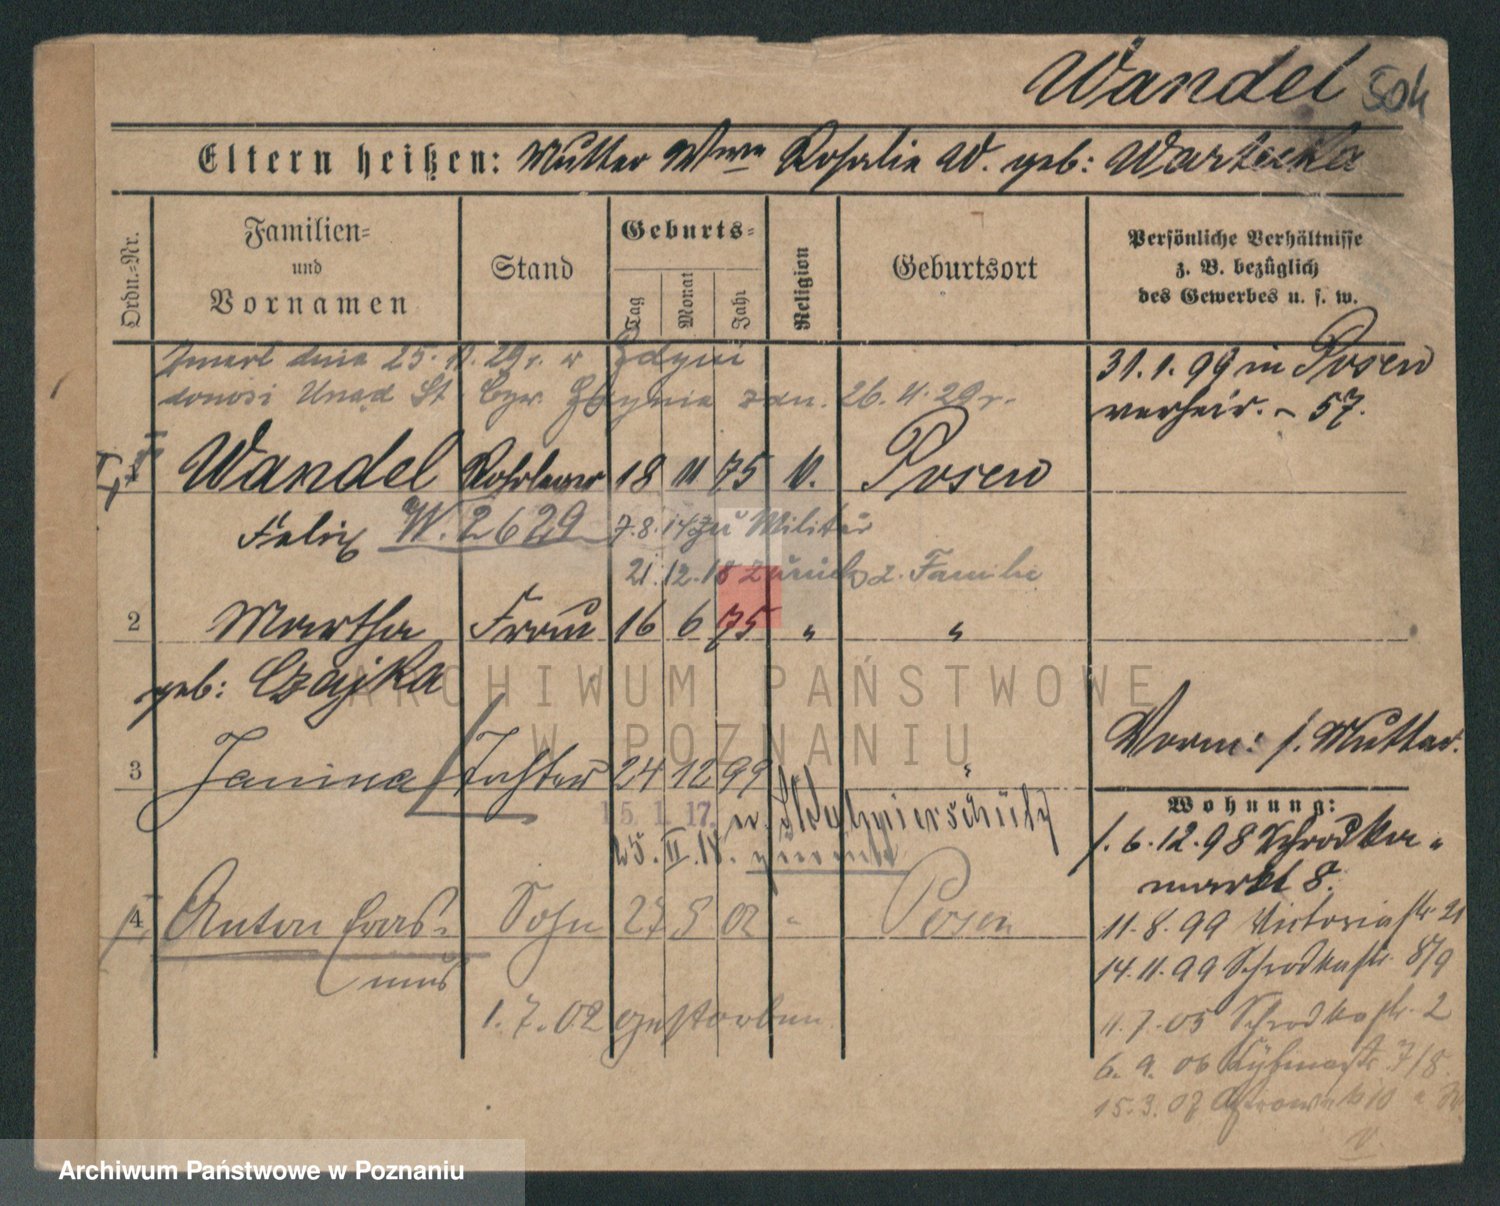 Wandel
Eltern heißen: Mutter Wwe Rosalie W. geb: Wartecka
Ordn.-Nr.
Familien-
und
Vornamen
Stand
Geburts-
Tag
Monat
Jahr
Religion
Geburtsort
Persönliche Verhältnisse
z. B. bezüglich
des Gewerbes u. s. w.
Zmarł dnia 25. 11. 29r. w Gdyni
donosi Urząd St. Cyw. Gdynia z dn. 26. 11. 29r.
31.1.99 in Posen
verheir. - 57.
Wandel 18 11 75 Posen
Felix W. 2629 7.8.14 zu Militär
21.12.18 zurück z. Familie
2 Martha Frau 16 6 75 " "
geb: Czajka
Vorm: s. Mutter.
3 Janina Tochter 24 12 99 "
15. 1. 17.
Wohnung:
s. 6.12.98 Schrodka-
markt 8.
4 Anton Eras- Sohn 27 5 02 " Posen
mus
1.7.02 gestorben
11.8.99 Victoriastr. 21
14.11.99 Schrodkastr. 8/9
11.7.05 Schrodkastr. 2
6. 9. 06 7/8.
15.3.07
ARCHIWUM PAŃSTWOWE
W POZNANIU
Archiwum Państwowe w Poznaniu